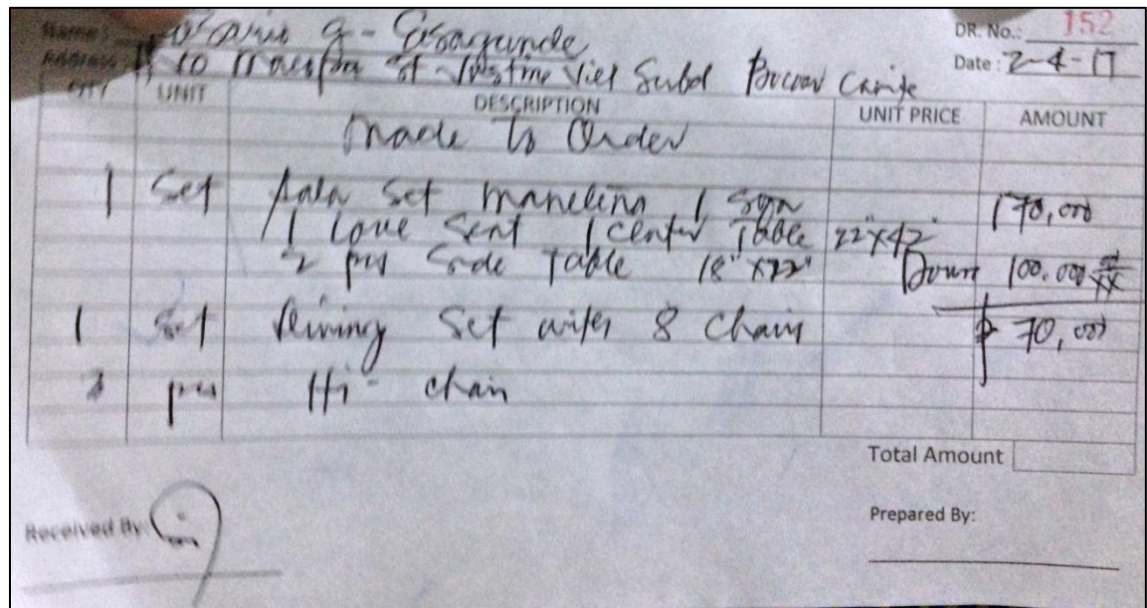 Name: G. Casagunde DR. No.: 152
Address: St. Justine Vill Subd Bacoor Cavite Date: 2-4-17
QTY UNIT DESCRIPTION UNIT PRICE AMOUNT
Made to Order
1 Set Sala Set 1 Sofa 170,000
1 Love Seat 1 Center Table 22"x42"
2 pcs Side Table 18"x22" Down 100.000
1 set Dining Set with 8 Chairs ₱ 70,000
pcs Hi-chair
Total Amount
Received By: Prepared By: